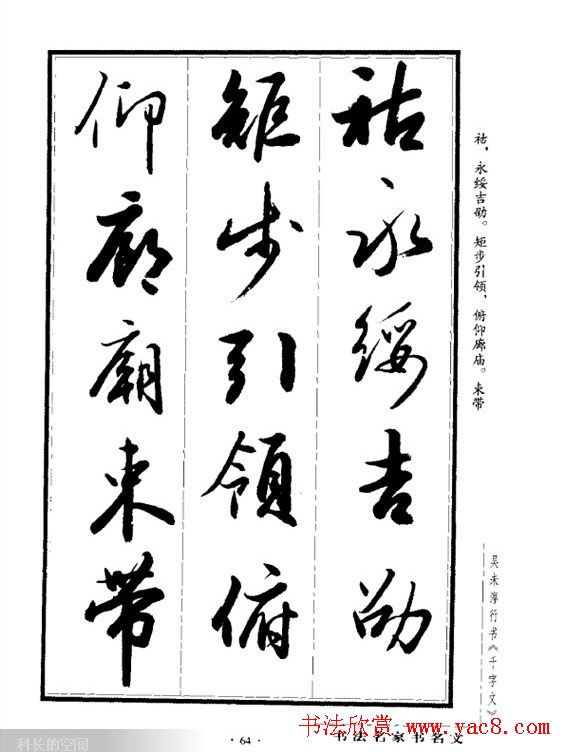 祜永綏吉劭
矩步引領俯
仰廊廟束帶
祜，永绥吉劭。矩步引领，俯仰廊庙。束带
吴未淳行书《千字文》
·64·
书法名家书名文
书法欣赏 www.yac8.com
科长的空间